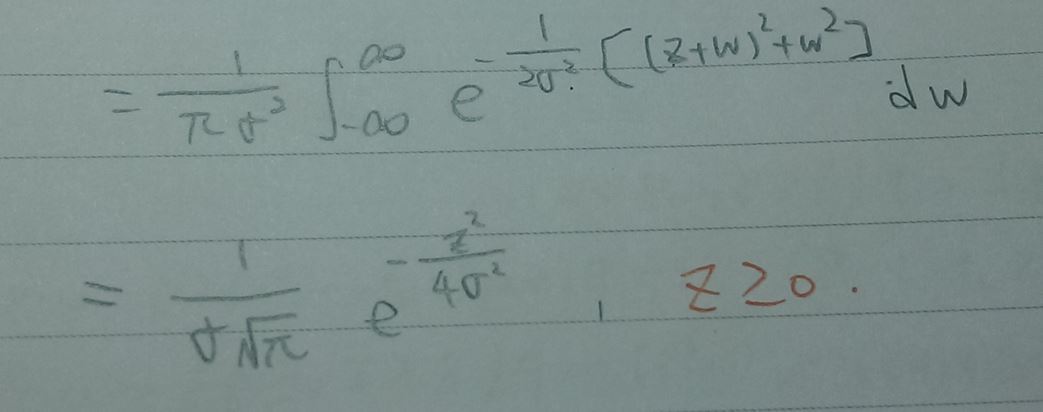 = \frac{1}{\pi\sigma^2} \int_{-\infty}^{\infty} e^{-\frac{1}{2\sigma^2}[(z+w)^2+w^2]} dw
= \frac{1}{\sigma\sqrt{\pi}} e^{-\frac{z^2}{4\sigma^2}}, z≥0.